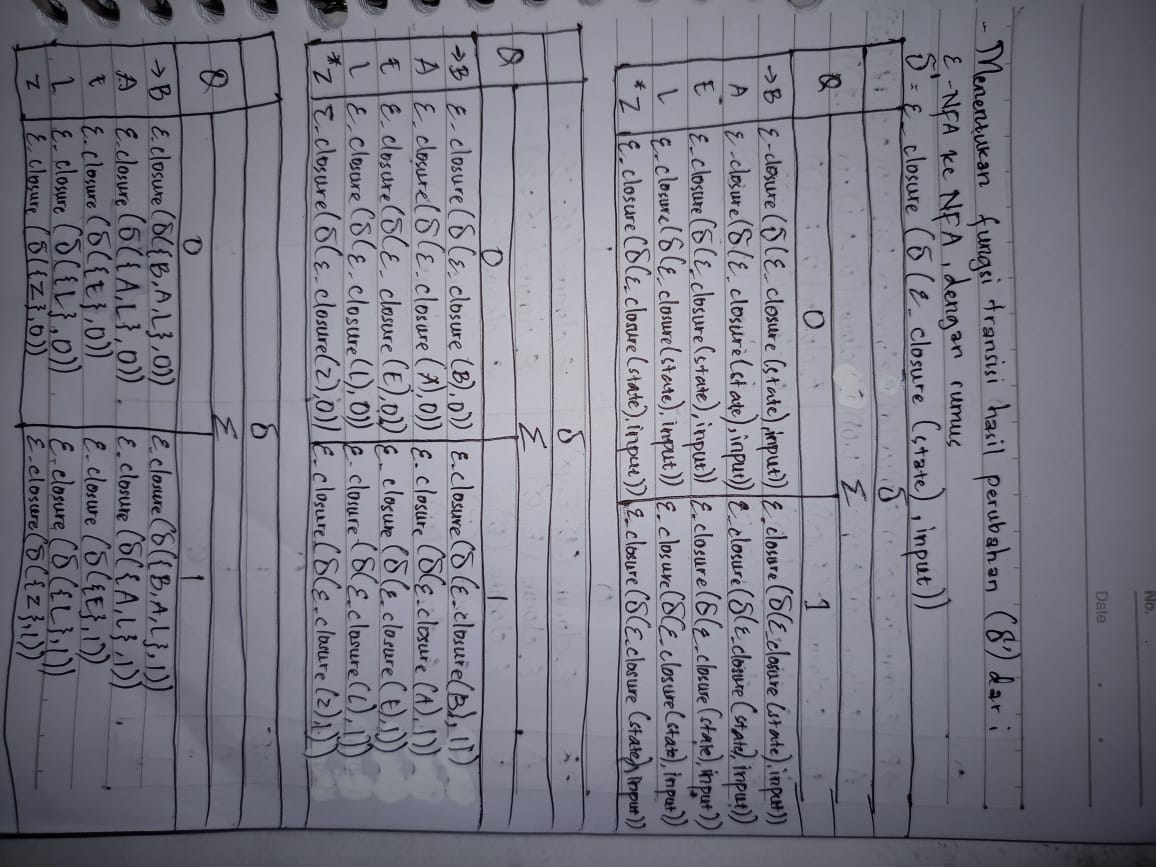 No.
Date
- Menentukan fungsi transisi hasil perubahan (δ') dari
ε-NFA ke NFA, dengan rumus
δ' = ε_closure (δ(ε_closure (state), input))
δ
Q Σ
0 1
→B ε-closure(δ(ε_closure(state),input)) ε_closure(δ(ε_closure(state),input))
A ε-closure(δ(ε_closure(state),input)) ε_closure(δ(ε_closure(state),input))
E ε_closure(δ(ε_closure(state),input)) ε_closure(δ(ε_closure(state),input))
L ε_closure(δ(ε_closure(state),input)) ε_closure(δ(ε_closure(state),input))
*Z ε_closure(δ(ε_closure(state),input)) ε_closure(δ(ε_closure(state),input))
δ
Q Σ
0 1
→B ε-closure(δ(ε_closure(B),0)) ε_closure(δ(ε_closure(B),1))
A ε_closure(δ(ε_closure(A),0)) ε_closure(δ(ε_closure(A),1))
E ε_closure(δ(ε_closure(E),0)) ε_closure(δ(ε_closure(E),1))
L ε_closure(δ(ε_closure(L),0)) ε_closure(δ(ε_closure(L),1))
*Z ε_closure(δ(ε_closure(Z),0)) ε_closure(δ(ε_closure(Z),1))
δ
Q Σ
0 1
→B ε_closure(δ({B,A,L},0)) ε_closure(δ({B,A,L},1))
A ε_closure(δ({A,L},0)) ε_closure(δ({A,L},1))
E ε_closure(δ({E},0)) ε_closure(δ({E},1))
L ε_closure(δ({L},0)) ε_closure(δ({L},1))
Z ε_closure(δ({Z},0)) ε_closure(δ({Z},1))